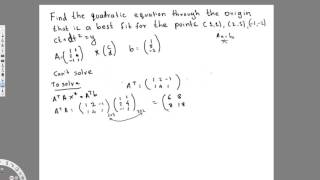 Find the quadratic equation through the origin
that is a best fit for the points (1,1), (2,5), (-1,-2)
ct + dt² = y
A = (1 1; 2 4; -1 1) x (c; d) b = (1; 5; -2) Ax = b
Can't solve
To solve Aᵀ = (1 2 -1; 1 4 1)
AᵀAx* = Aᵀb
AᵀA = (1 2 -1; 1 4 1) (1 1; 2 4; -1 1) = (6 8; 8 18)
2x3 3x2